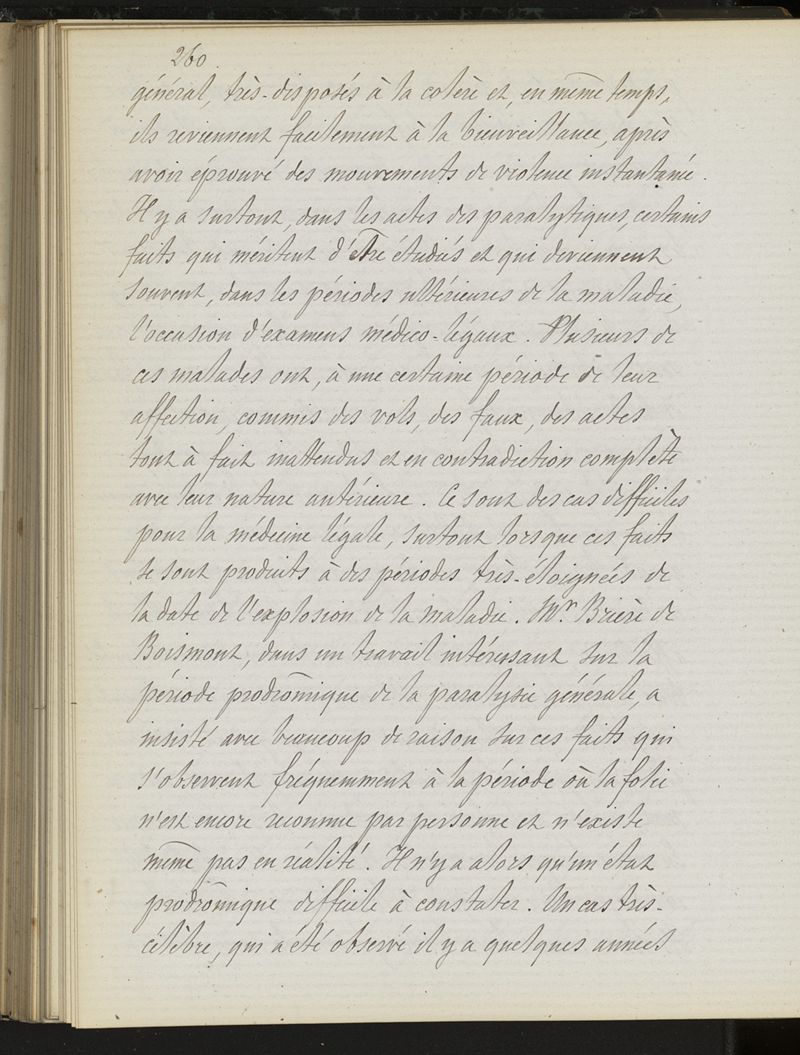 260
général, très-disposés à la colère et, en même temps,
ils reviennent facilement à la bienveillance, après
avoir éprouvé des mouvements de violence instantanée.
Il y a surtout, dans les actes des paralytiques, certains
faits qui méritent d'être étudiés et qui deviennent
souvent, dans les périodes ultérieures de la maladie,
l'occasion d'examens médico-légaux. Plusieurs de
ces malades ont, à une certaine période de leur
affection, commis des vols, des faux, des actes
tout à fait inattendus et en contradiction complète
avec leur nature antérieure. Ce sont des cas difficiles
pour la médecine légale, surtout lorsque ces faits
se sont produits à des périodes très-éloignées de
la date de l'explosion de la maladie. Mr. Brière de
Boismont, dans un travail intéressant sur la
période prodrômique de la paralysie générale, a
insisté avec beaucoup de raison sur ces faits qui
s'observent fréquemment à la période où la folie
n'est encore reconnue par personne et n'existe
même pas en réalité. Il n'y a alors qu'un état
prodrômique difficile à constater. Un cas très-
célèbre, qui a été observé il y a quelques années